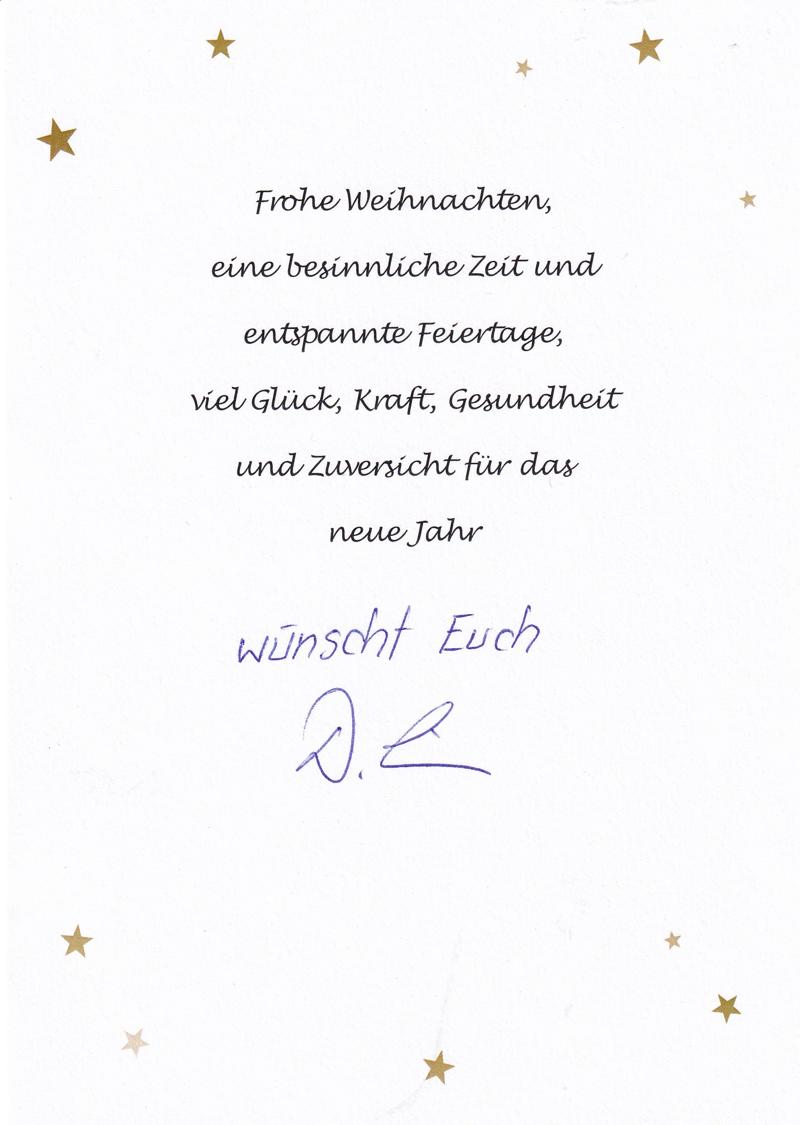 Frohe Weihnachten,
eine besinnliche Zeit und
entspannte Feiertage,
viel Glück, Kraft, Gesundheit
und Zuversicht für das
neue Jahr
wünscht Euch
D.